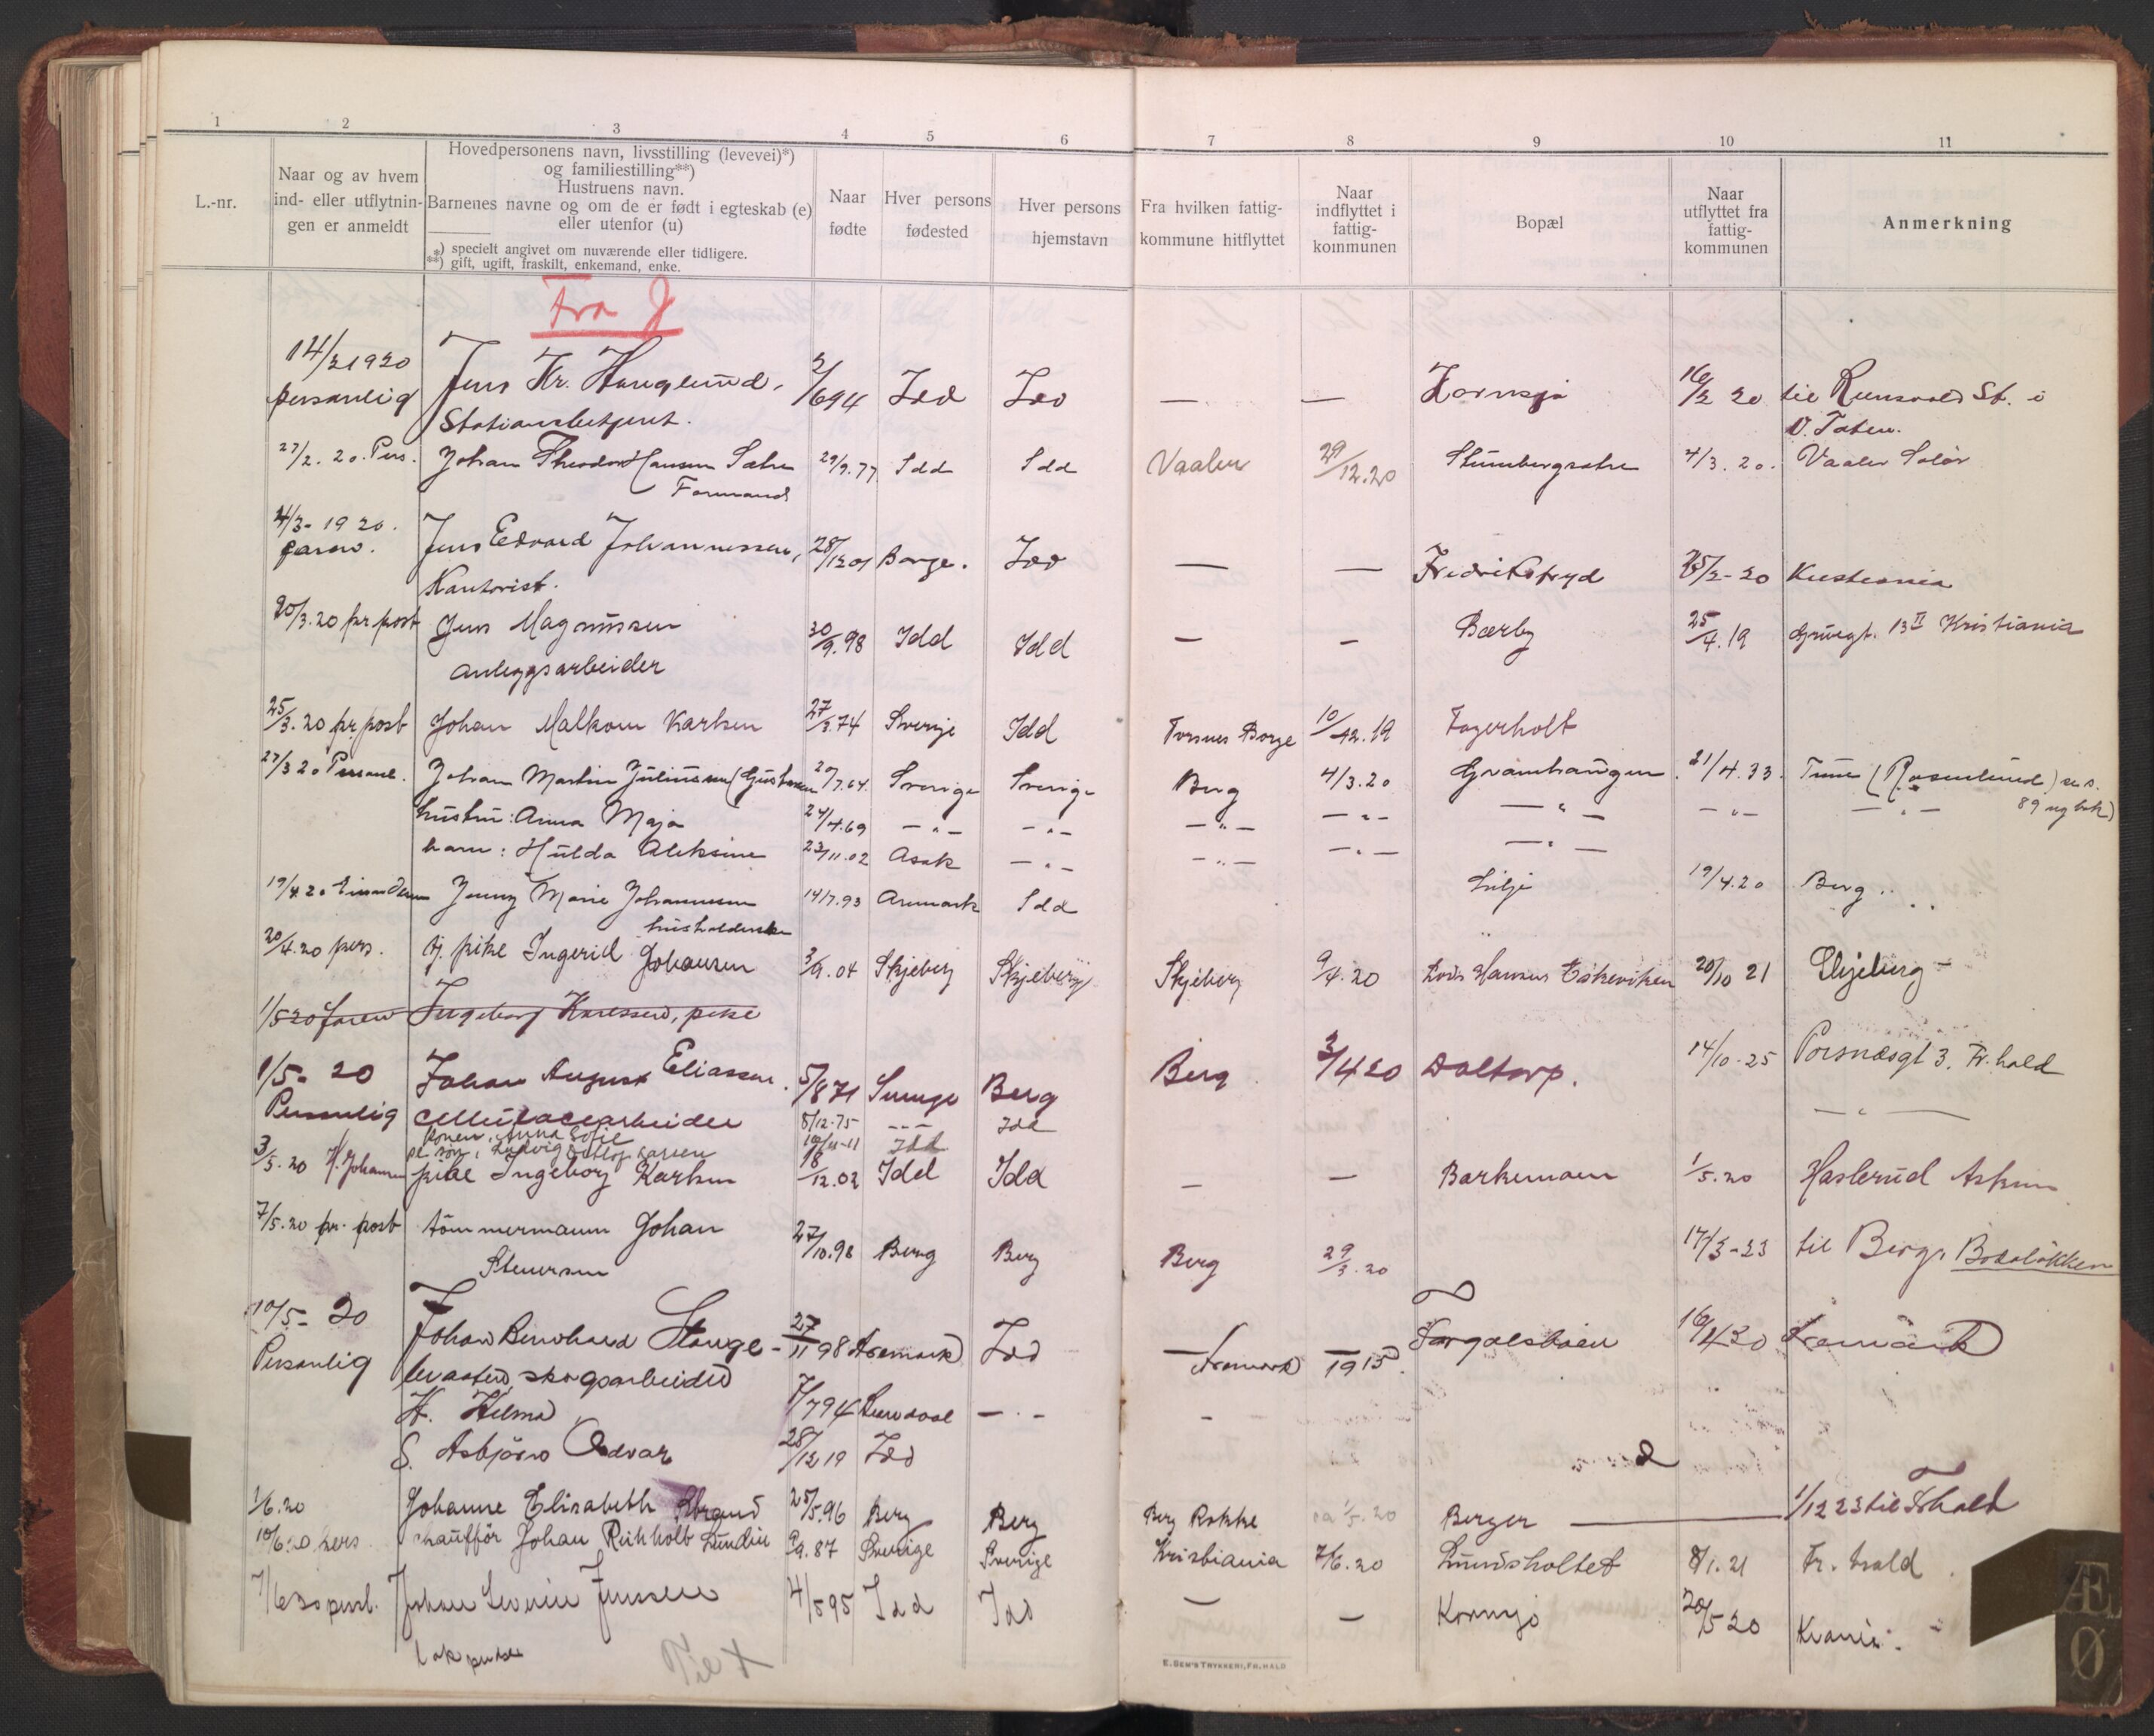 1 2 3 4 5 6 7 8 9 10 11
L.-nr.
Naar og av hvem ind- eller utflytningen er anmeldt
Hovedpersonens navn, livsstilling (levevei)*)
og familiestilling**)
Hustruens navn.
Barnenes navne og om de er født i egteskab (e)
eller utenfor (u)
*) specielt angivet om nuværende eller tidligere.
**) gift, ugift, fraskilt, enkemand, enke.
Naar fødte
Hver persons fødested
Hver persons hjemstavn
Fra hvilken fattigkommune hitflyttet
Naar indflyttet i fattigkommunen
Bopæl
Naar utflyttet fra fattigkommunen
Anmerkning
Fra J
14/2 1920 Jens Kr. Hauglund, 2/6 94 Idd Idd — — Kornsjø 16/2 20 til Reinsvold St. i
personlig Stationsbetjent. V. Toten.
27/2. 20. Pers. Johan Theodor Hansen Sætre 29/9.77 Idd Idd Vaaler 29/12.20 4/3. 20. Vaaler Solør
Formand
4/3- 1920. Jens Edvard Johannessen, 28/12 01 Borge. Idd — — Fredriksfryd 25/2-20 Kristiania
faren. Kontorist.
20/3.20 pr post Jens Magnussen 30/9.98 Idd Idd — — Bærby 25/4.19 13 II Kristiania
anleggsarbeider
25/3.20 pr. post Johan Malkom Karlsen 27/3.74 Sverige Idd Torsnes Borge 10/12.19 Fagerholt
27/3 20 Personl. Johan Martin Juliussen (Gustavsen 20/7.64. Sverige Sverige Berg 4/3.20 Granhaugen. 21/4.33. Tune (Rosenlund) se s.
89 ny bok)
hustru: Anna Maja 24/4.69 — " — — " — — " — — " — — " — — " — — " —
barn: Hulda Aleksine 23/11.02 Asak — " — — " — — " — — " —
19/4.20 Jenny Marie Johannessen 14/7.93 Aremark Idd 19/4.20 Berg
husholderske
20/4.20 pers. Tj. pike Ingerid Johansen 3/9.04 Skjeberg Skjeberg Skjeberg 9/4.20 Lovis Hansen 20/10 21 Skjeberg
1/5 20 faren Ingeborg Karlsen, pike
1/5- 20 Johan August Eliassen. 5/8 71 Sverige Berg Berg 3/4 20 Daltorp. 14/10-25 Porsnæsgt 3. Fr.hald
Personlig Cellulosearbeider
konen, Anna Sofie 8/12-75 - - - Idd — " —
pl. søn, Ludvig Karlsen 10/11-11 Idd
3/5.20 H. Johansen pike Ingeborg Karlsen 18/12.02 Idd Idd — — Barkemoen 1/5.20 Haslerud Askim
7/5.20 pr. post tömmermann Johan 27/10.98 Berg Berg Berg 29/3.20 17/3-23 til Berg.
Stenersen
10/5- 20 Johan Bernhard Stange - 27/11 98 Aremark Idd Aremark 1915. 16/4 20 Aremark
Personlig skogsarbeider
H. Hilma 7/7 94 — " — -
S. Asbjørn Odvar 28/12 19 Idd
1/6.20 Johanne Elisabeth Strand 25/5.96 Berg Berg Berg Rokke ca 1/5.20 Berger — 1/12 23 til Fr.hald
10/6.20 pers chauffør Johan Lundin 9/9.87 Sverige Sverige Kristiania 7/6.20 Lundsholtet 8/1.21 Fr. hald
7/6 20 persl. Johan Severin Jensen 4/5 95 Idd Idd — — Kornsjø 20/5 20 Kr.ania
Lokpudser
Til +
E. SEM'S TRYKKERI, FR.HALD
Æ
Ø